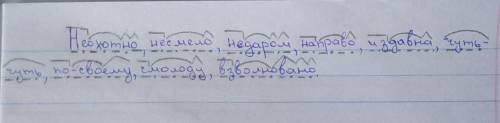 Неохотно, несмело, недаром, направо, издавна, чуть-
чуть, по-своему, смолоду, взволновано.